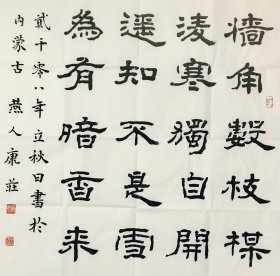 墙角數枝楳
凌寒獨自開
遥知不是雪
為有暗香来
貳千零八年立秋日書於
内蒙古 燕人康莊